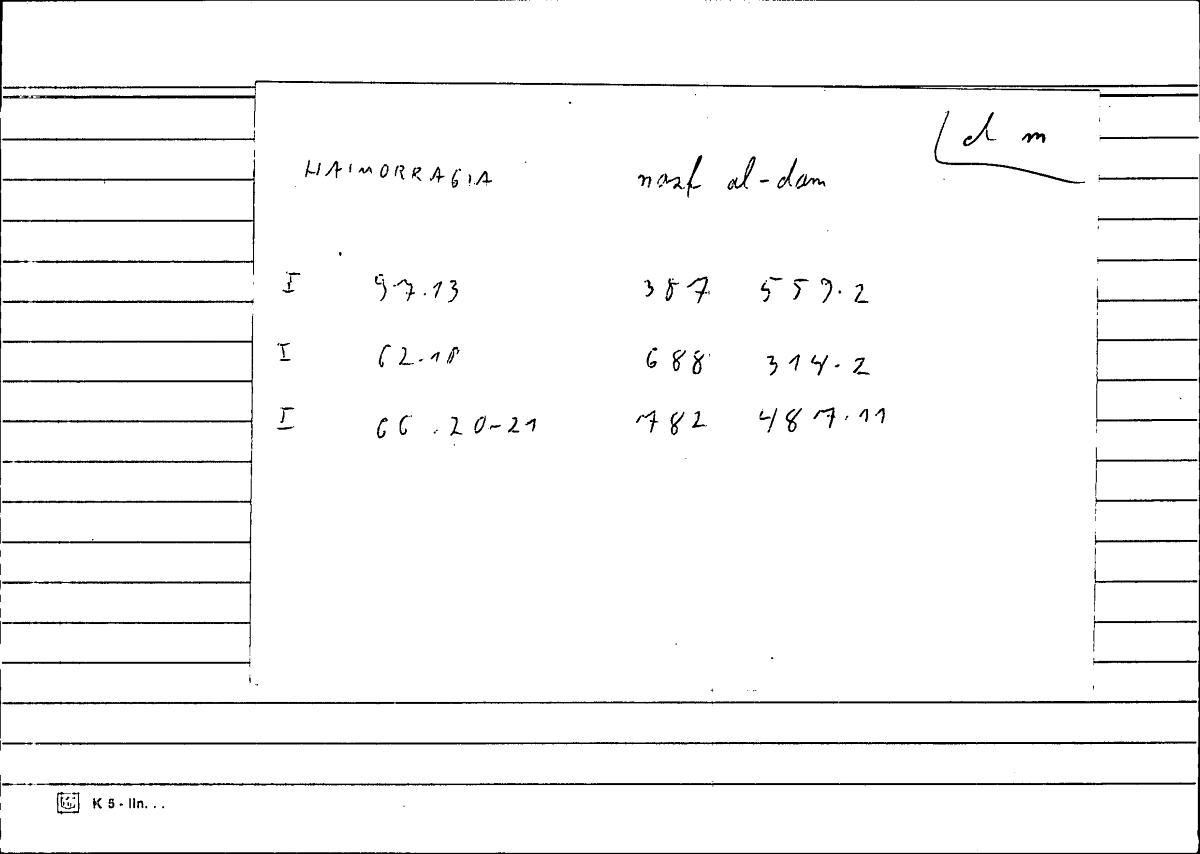 d m
HAIMORRAGIA nazf al-dam
I 97.13 387 559.2
I 62.18 688 314.2
I 66.20-21 782 487.11
K 5 - lln. . .